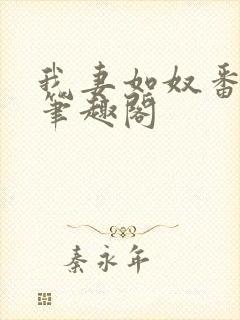 我妻如奴番
笔趣阁
秦永年